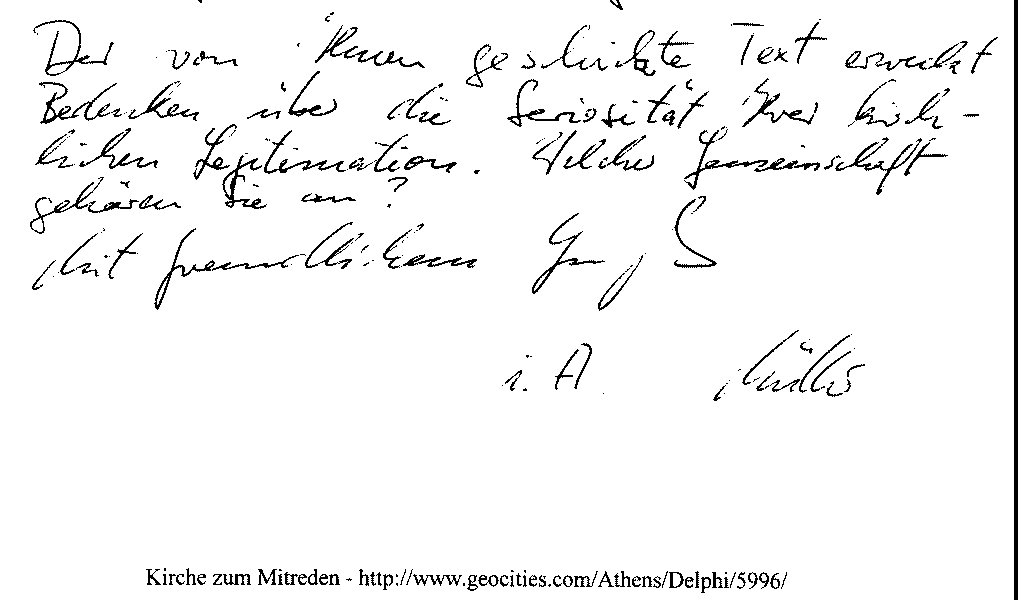 Der von Ihnen geschickte Text erweckt
Bedenken über die Seriosität Ihrer kirch-
lichen Legitimation. Welcher Gemeinschaft
gehören Sie an?
Mit freundlichem Gruß
i. A. Müller
Kirche zum Mitreden - http://www.geocities.com/Athens/Delphi/5996/